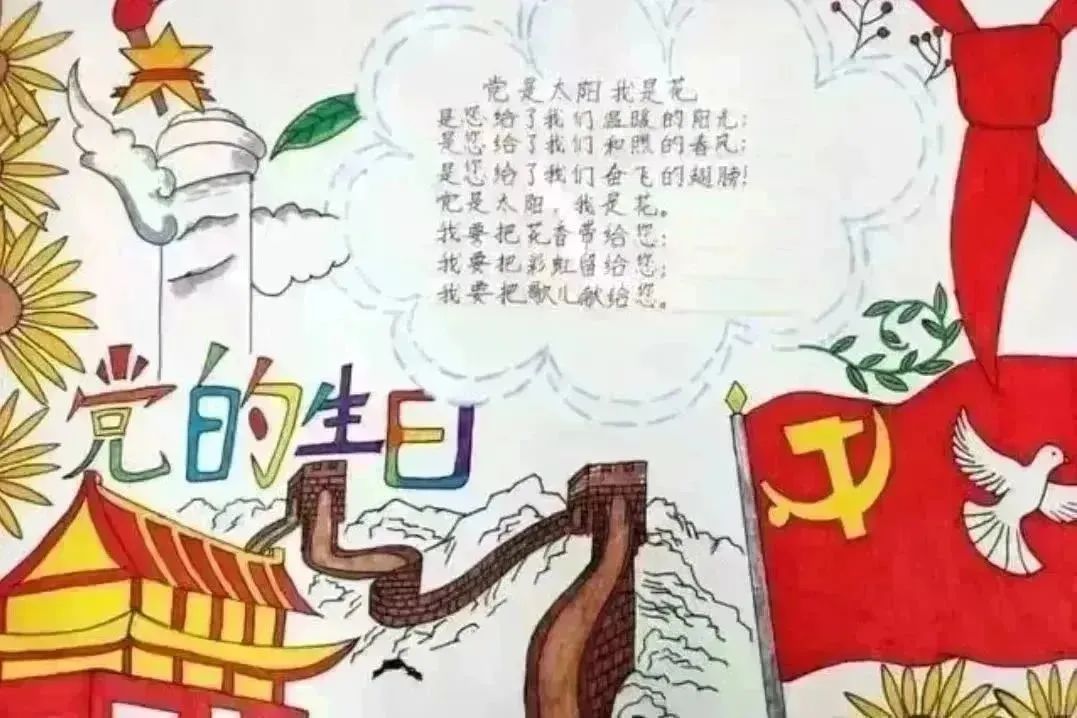 党是太阳我是花
是您给了我们温暖的阳光;
是您给了我们和煦的春风;
是您给了我们奋飞的翅膀!
党是太阳，我是花。
我要把花香带给您;
我要把彩虹留给您;
我要把歌儿献给您。
党的生日